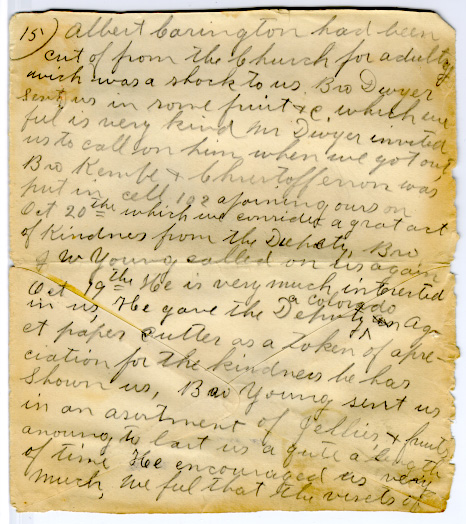 15) Albert Carington had been
cut of from the Church for adultry
wich was a shock to us. Bro Dwyer
sent us in some fruit & c. which we
ful is very kind Mr Dwyer invited
us to call on him when we got out
Bro Kembe & Christofferson was
put in cell 102 ajoining ours on
Oct 20th which we consider a grat act
of Kindness from the Deputy, Bro
J W Young called on us again
Oct 19th He is very much intrested
in us, He gave the Deputy a Colorado Aga
et paper cutter as a token of apre-
ciation for the kindness he has
Shown us, Bro Young sent us
in an asortment of Jellies & fruits
anoung to last us a quite a length
of time He encouraged us very
much, we ful that the visets of